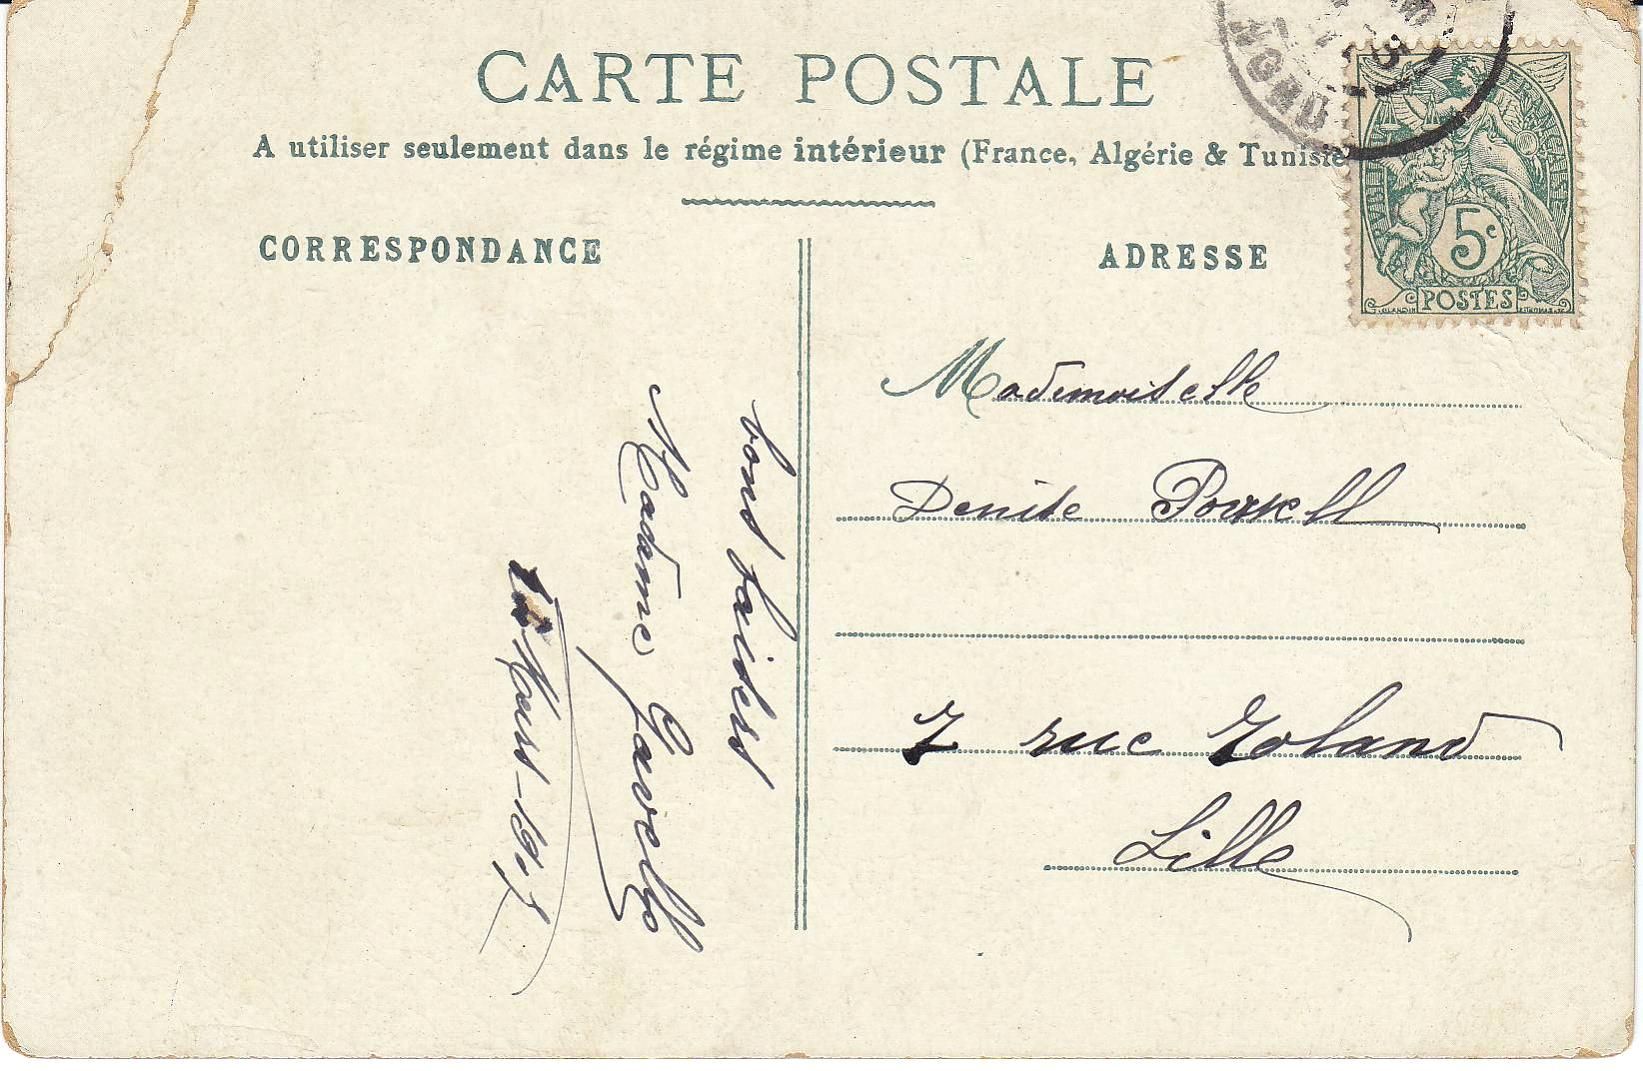 CARTE POSTALE
A utiliser seulement dans le régime intérieur (France, Algérie & Tunisie
CORRESPONDANCE
ADRESSE
5c
POSTES
NORD
bons baisers
Madame
Mars
Mademoiselle
Denise
7 rue Roland
Lille